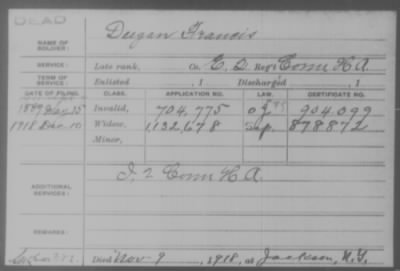 DEAD
NAME OF SOLDIER: Deegan Francis
SERVICE: Late rank, Co. E, D, Reg't Conn H A.
TERM OF SERVICE: Enlisted , 1 Discharged , 1
DATE OF FILING. CLASS. APPLICATION NO. LAW. CERTIFICATE NO.
1889 Invalid, 704,775 904,099
1918 Dec. 10 Widow, 1,132,678 878872
Minor,
ADDITIONAL SERVICES: I, 2 Conn H A.
REMARKS:
Died Nov 9 , 1918, at Jackson,